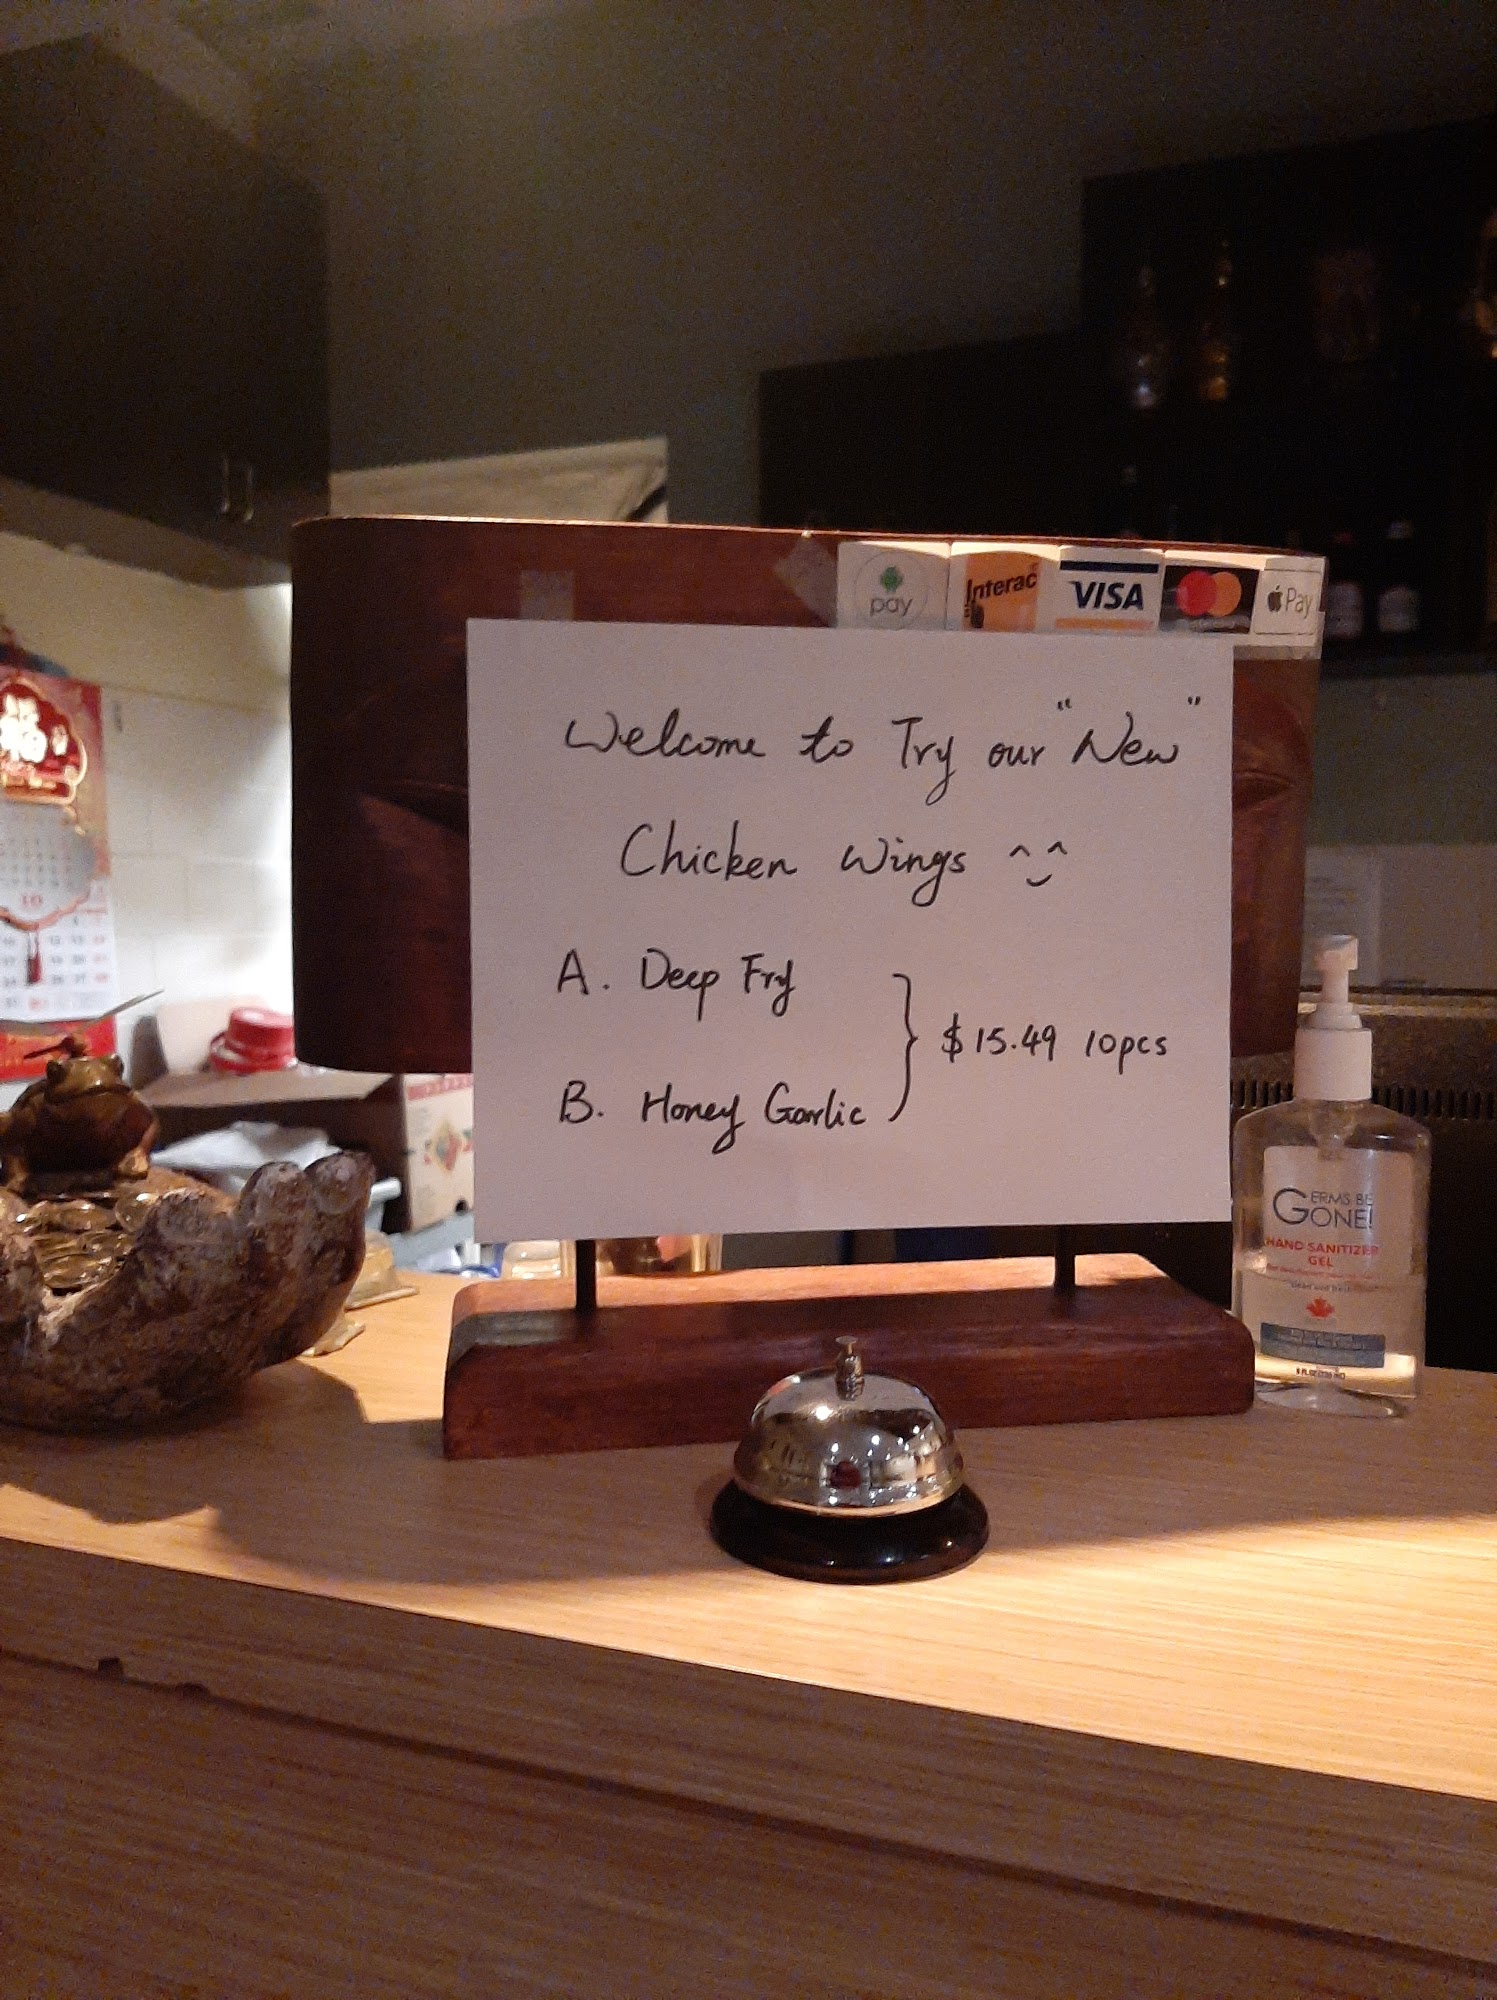 福
10
pay
Interac
VISA
Pay
Welcome to Try our "New"
Chicken Wings ^‿^
A. Deep Fry
B. Honey Garlic
$15.49 10pcs
GERMS BE
GONE!
HAND SANITIZER
GEL